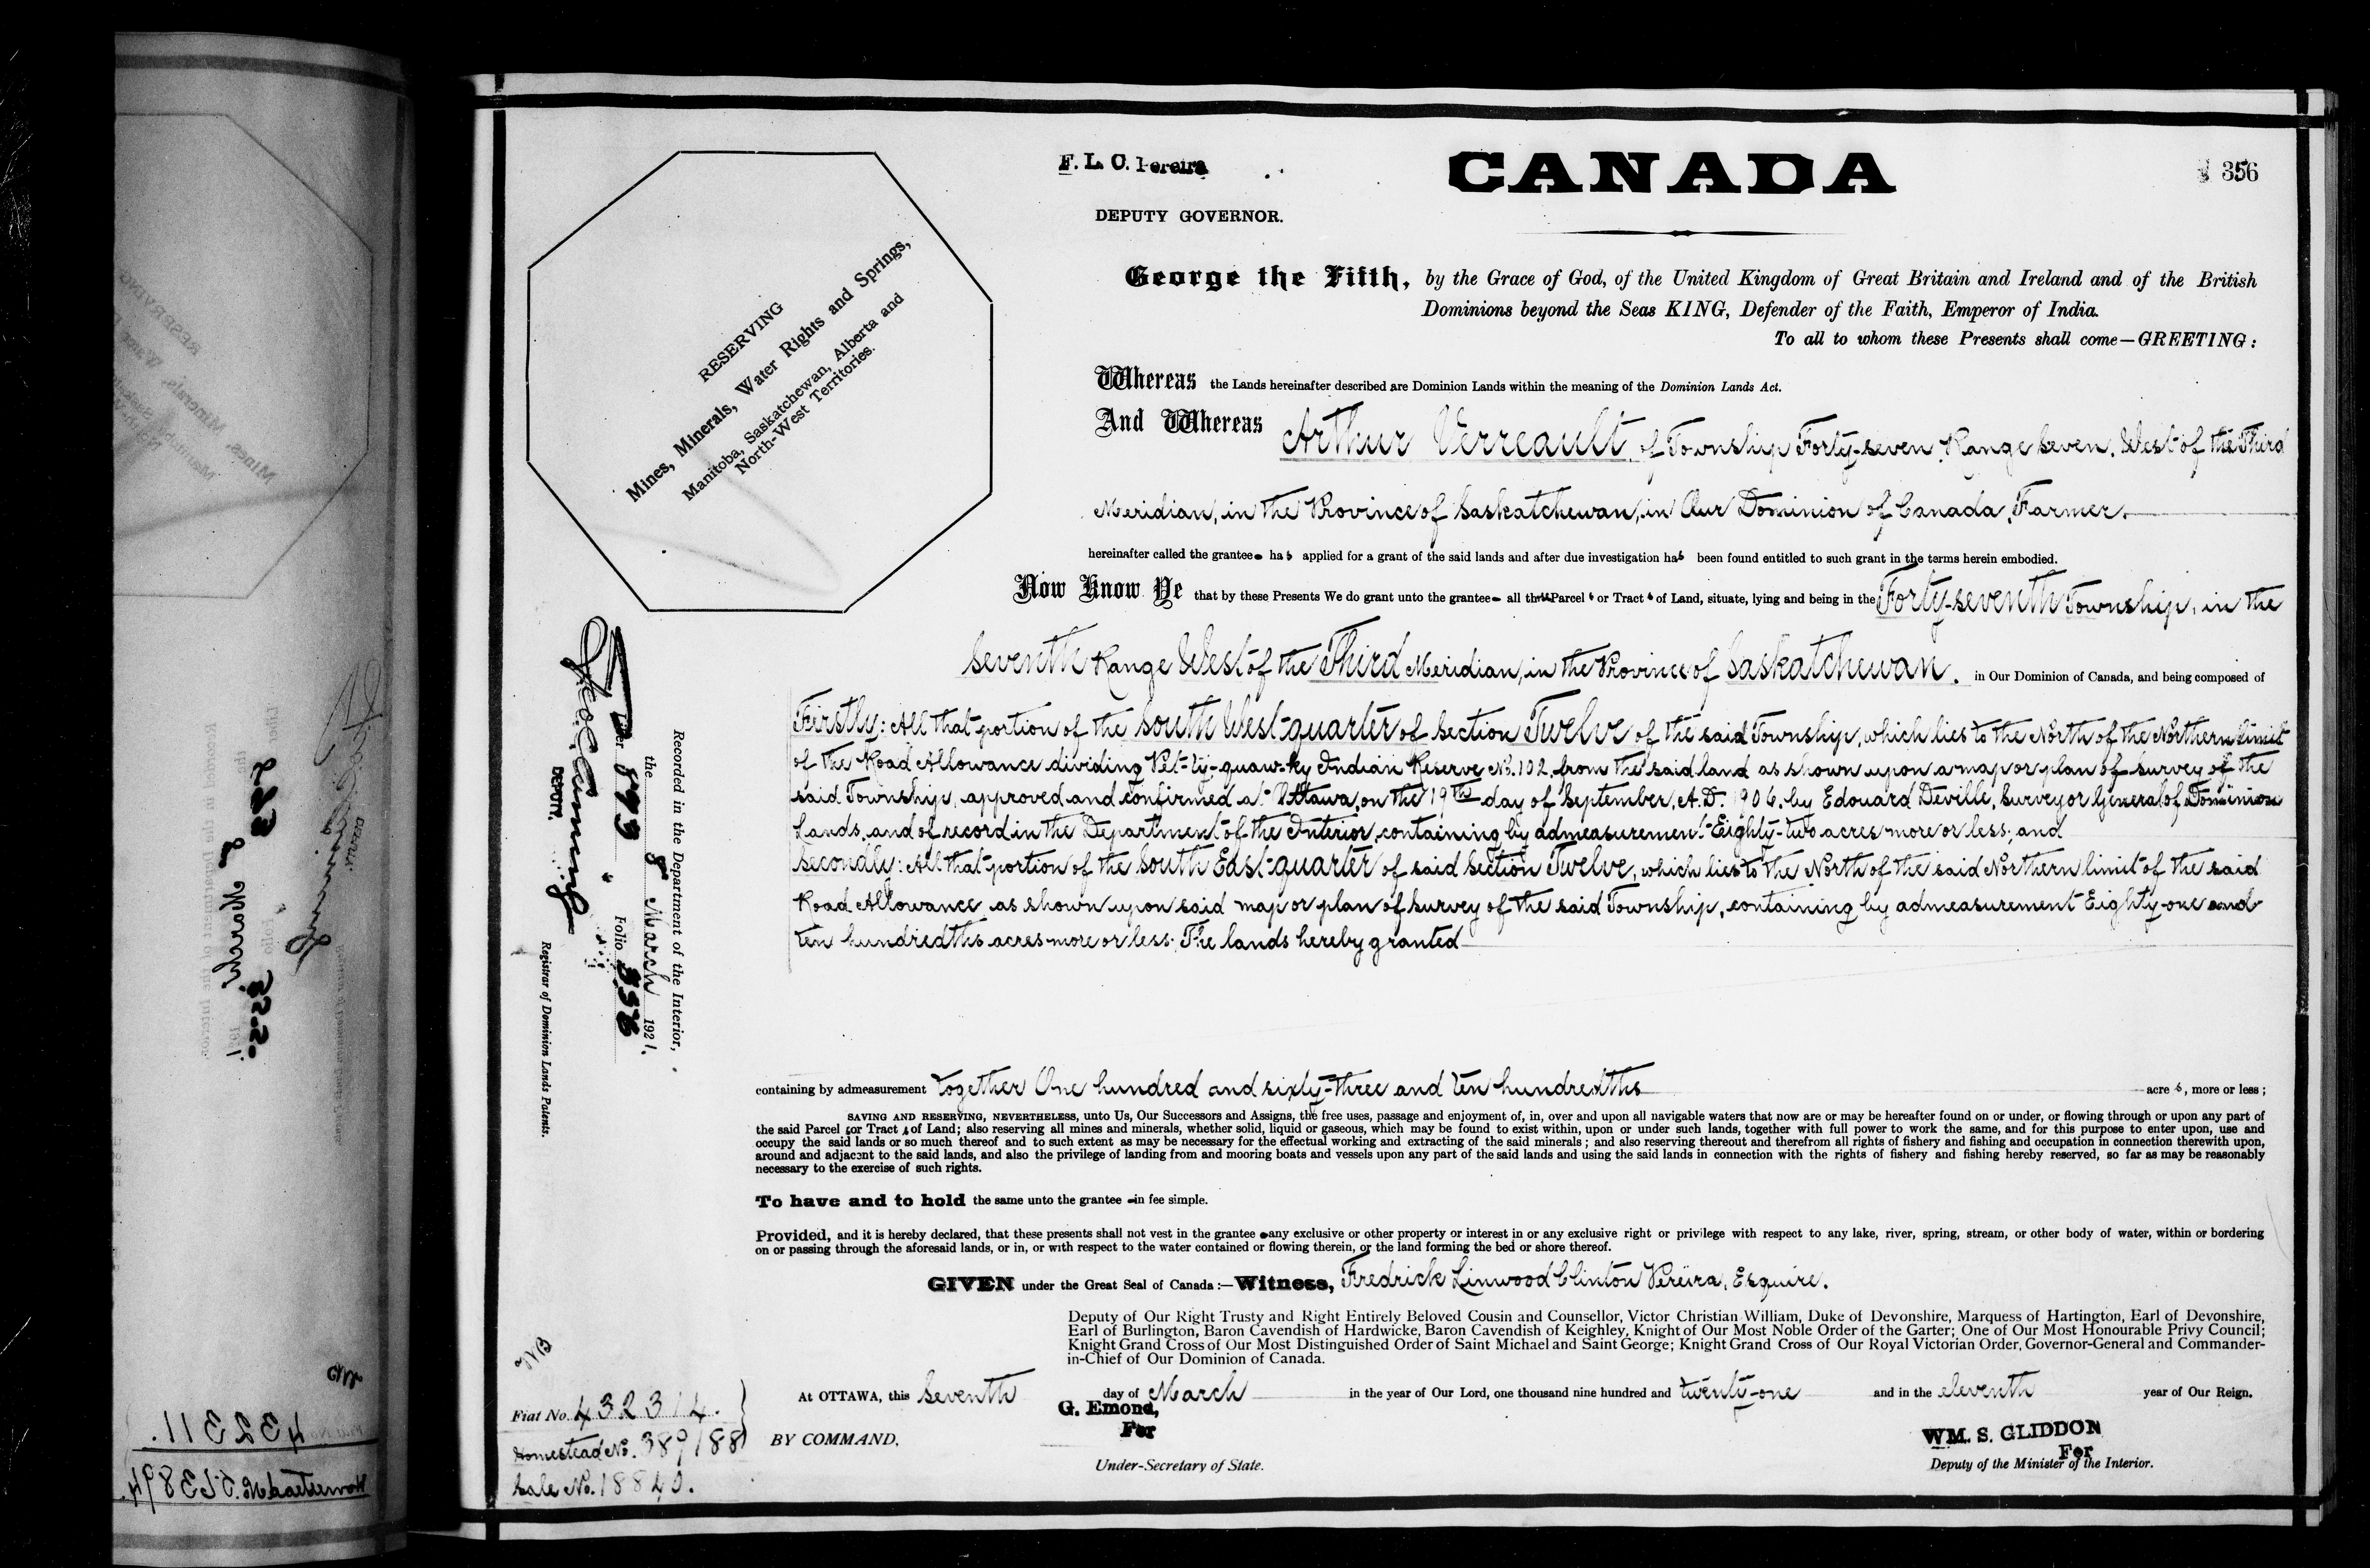 F. L. C. Pereira
CANADA
356
DEPUTY GOVERNOR.
RESERVING
Mines, Minerals, Water Rights and Springs,
Manitoba, Saskatchewan, Alberta and
North-West Territories.
George the Fifth, by the Grace of God, of the United Kingdom of Great Britain and Ireland and of the British
Dominions beyond the Seas KING, Defender of the Faith, Emperor of India.
To all to whom these Presents shall come—GREETING:
Whereas the Lands hereinafter described are Dominion Lands within the meaning of the Dominion Lands Act.
And Whereas Arthur Verreault, of Township Forty-seven, Range Seven, West of the Third
Meridian, in the Province of Saskatchewan, in Our Dominion of Canada, Farmer.
hereinafter called the grantee has applied for a grant of the said lands and after due investigation has been found entitled to such grant in the terms herein embodied.
Now Know Ye that by these Presents We do grant unto the grantee all those Parcels or Tracts of Land, situate, lying and being in the Forty-seventh Township, in the
Seventh Range West of the Third Meridian, in the Province of Saskatchewan. in Our Dominion of Canada, and being composed of
Firstly: All that portion of the South West quarter of Section Twelve of the said Township, which lies to the North of the Northern limit
of the Road Allowance dividing Pet-ty-quaw-ky Indian Reserve No. 102, from the said land as shown upon a map or plan of survey of the
said Township, approved and confirmed at Ottawa, on the 19th day of September, A.D. 1906, by Edouard Deville, Surveyor General of Dominion
Lands, and of record in the Department of the Interior, containing by admeasurement Eighty-two acres more or less; and
Secondly: All that portion of the South East quarter of said Section Twelve, which lies to the North of the said Northern limit of the said
Road Allowance as shown upon said map or plan of survey of the said Township, containing by admeasurement Eighty-one and
ten hundredths acres more or less; The lands hereby granted
containing by admeasurement together One hundred and sixty-three and ten hundredths acres, more or less;
SAVING AND RESERVING, NEVERTHELESS, unto Us, Our Successors and Assigns, the free uses, passage and enjoyment of, in, over and upon all navigable waters that now are or may be hereafter found on or under, or flowing through or upon any part of
the said Parcels or Tracts of Land; also reserving all mines and minerals, whether solid, liquid or gaseous, which may be found to exist within, upon or under such lands, together with full power to work the same, and for this purpose to enter upon, use and
occupy the said lands or so much thereof and to such extent as may be necessary for the effectual working and extracting of the said minerals; and also reserving thereout and therefrom all rights of fishery and fishing and occupation in connection therewith upon,
around and adjacent to the said lands, and also the privilege of landing from and mooring boats and vessels upon any part of the said lands and using the said lands in connection with the rights of fishery and fishing hereby reserved, so far as may be reasonably
necessary to the exercise of such rights.
To have and to hold the same unto the grantee in fee simple.
Provided, and it is hereby declared, that these presents shall not vest in the grantee any exclusive or other property or interest in or any exclusive right or privilege with respect to any lake, river, spring, stream, or other body of water, within or bordering
on or passing through the aforesaid lands, or in, or with respect to the water contained or flowing therein, or the land forming the bed or shore thereof.
GIVEN under the Great Seal of Canada:—Witness, Fredrick Linwood Clinton Pereira, Esquire.
Deputy of Our Right Trusty and Right Entirely Beloved Cousin and Counsellor, Victor Christian William, Duke of Devonshire, Marquess of Hartington, Earl of Devonshire,
Earl of Burlington, Baron Cavendish of Hardwicke, Baron Cavendish of Keighley, Knight of Our Most Noble Order of the Garter; One of Our Most Honourable Privy Council;
Knight Grand Cross of Our Most Distinguished Order of Saint Michael and Saint George; Knight Grand Cross of Our Royal Victorian Order, Governor-General and Commander-
in-Chief of Our Dominion of Canada.
At OTTAWA, this Seventh day of March in the year of Our Lord, one thousand nine hundred and twenty-one and in the eleventh year of Our Reign.
G. Emond,
For
BY COMMAND,
Under-Secretary of State.
WM. S. GLIDDON
For
Deputy of the Minister of the Interior.
Recorded in the Department of the Interior,
the 8 March 1921.
Liber 893 Folio 356
DEPUTY.
Registrar of Dominion Lands Patents.
Fiat No. 432314.
Homestead No. 389188
Sale No. 18840.